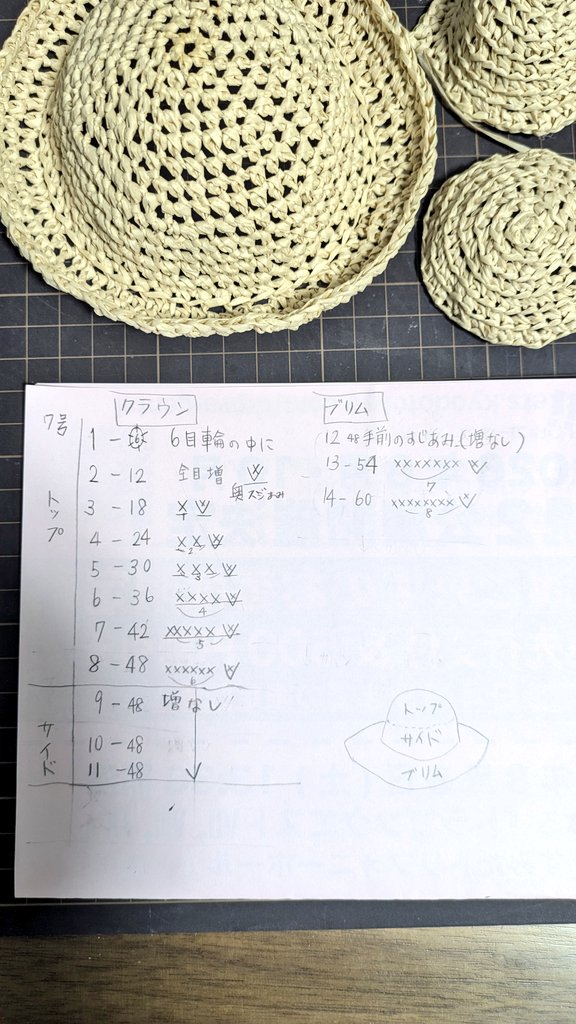 クラウン
7号
トップ
1 - 6 6目輪の中に
2 - 12 全目増 V
奥スジあみ
3 - 18 x V
1
4 - 24 x x V
2
5 - 30 x x x V
3
6 - 36 x x x x V
4
7 - 42 x x x x x V
5
8 - 48 x x x x x x V
6
サイド
9 - 48 増なし!!
10 - 48
11 - 48
ブリム
12 48 手前のすじあみ(増なし)
13 - 54 x x x x x x x V
7
14 - 60 x x x x x x x x V
8
トップ
サイド
ブリム